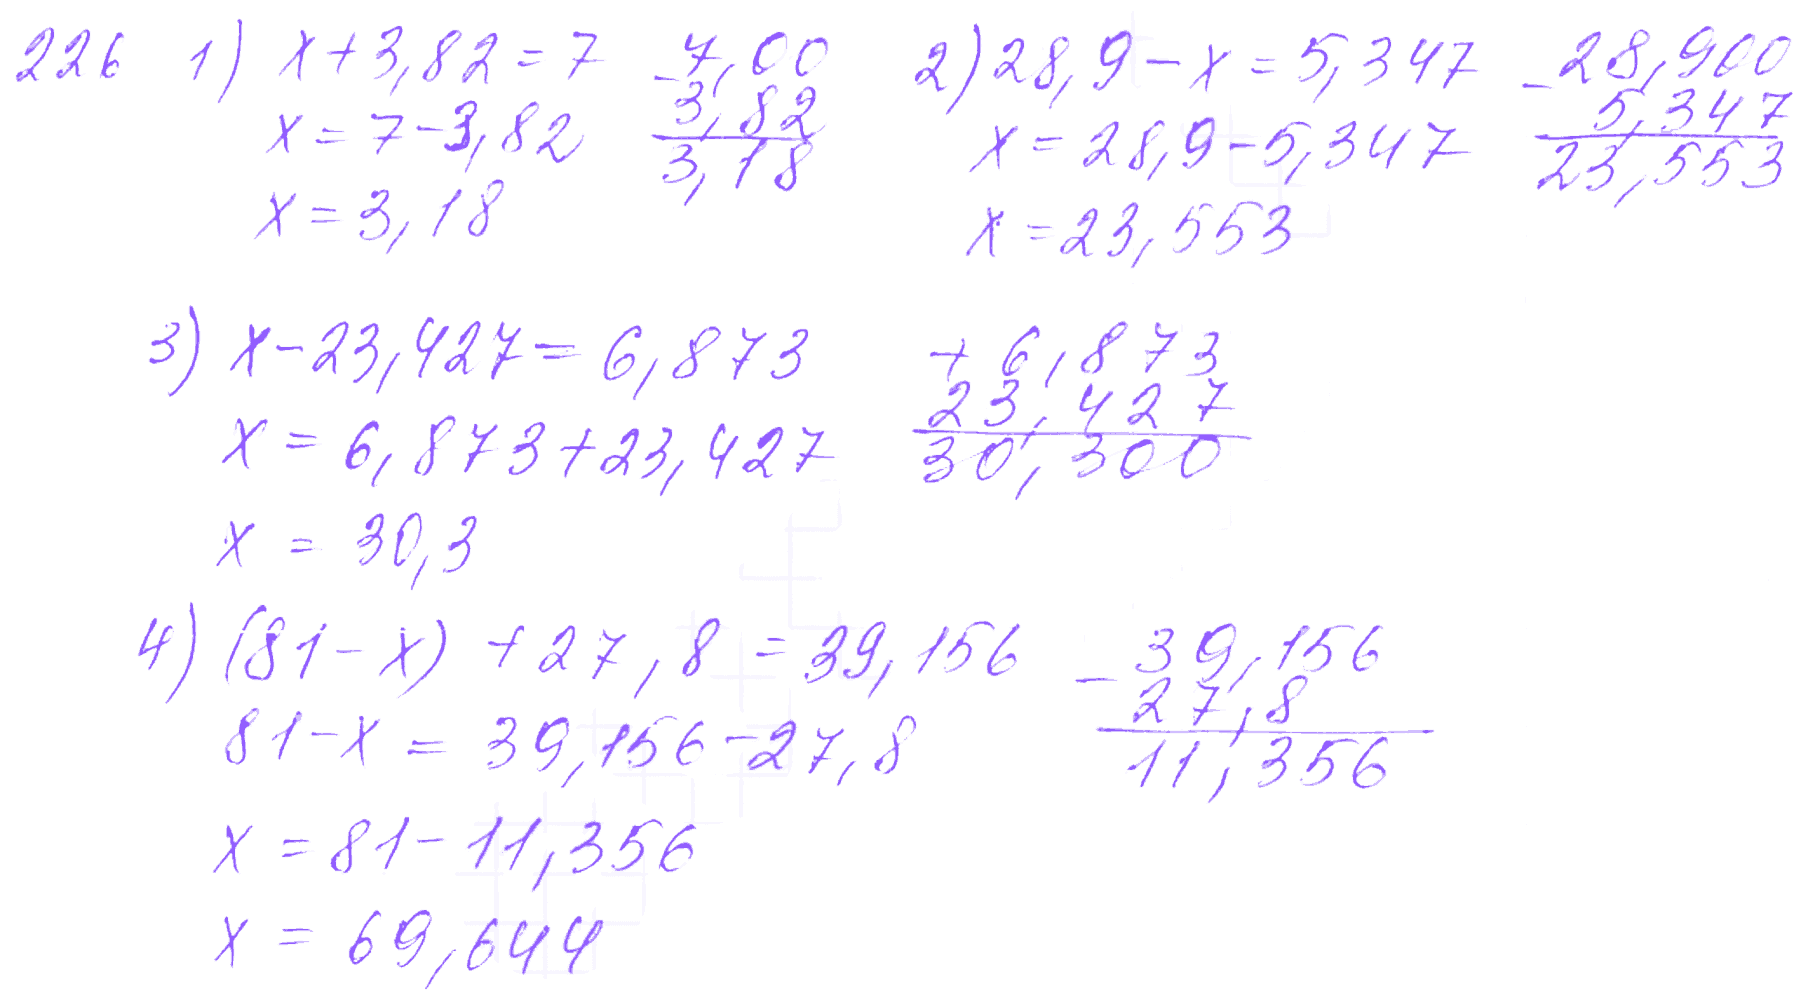 226 1) x+3,82=7 -7,00 2) 28,9-x=5,347 -28,900
x=7-3,82 3,82 x=28,9-5,347 5,347
x=3,18 3,18 x=23,553 23,553
3) x-23,427=6,873 +6,873
x=6,873+23,427 23,427
x=30,3 30,300
4) (81-x)+27,8=39,156 -39,156
81-x=39,156-27,8 27,8
x=81-11,356 11,356
x=69,644